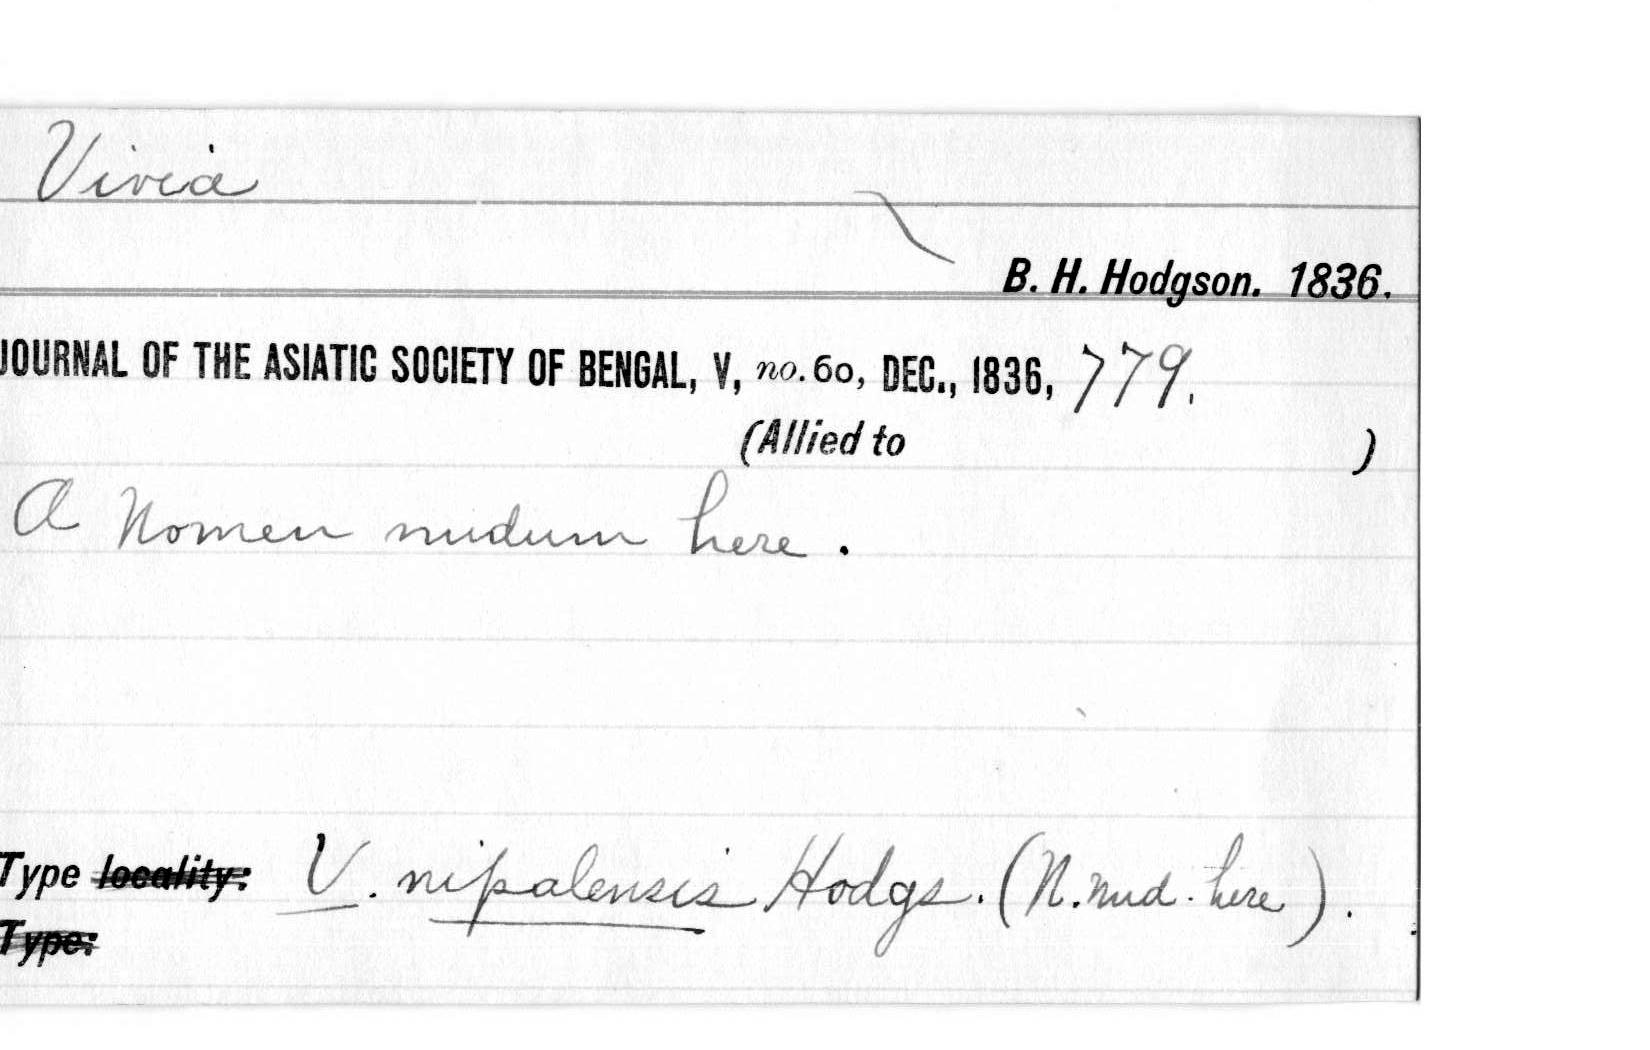 Vivia
B. H. Hodgson. 1836.
JOURNAL OF THE ASIATIC SOCIETY OF BENGAL, V, no. 60, DEC., 1836, 779.
(Allied to )
A Nomen nudum here.
Type locality: V. nipalensis Hodgs. (N. nud. here).
Type: